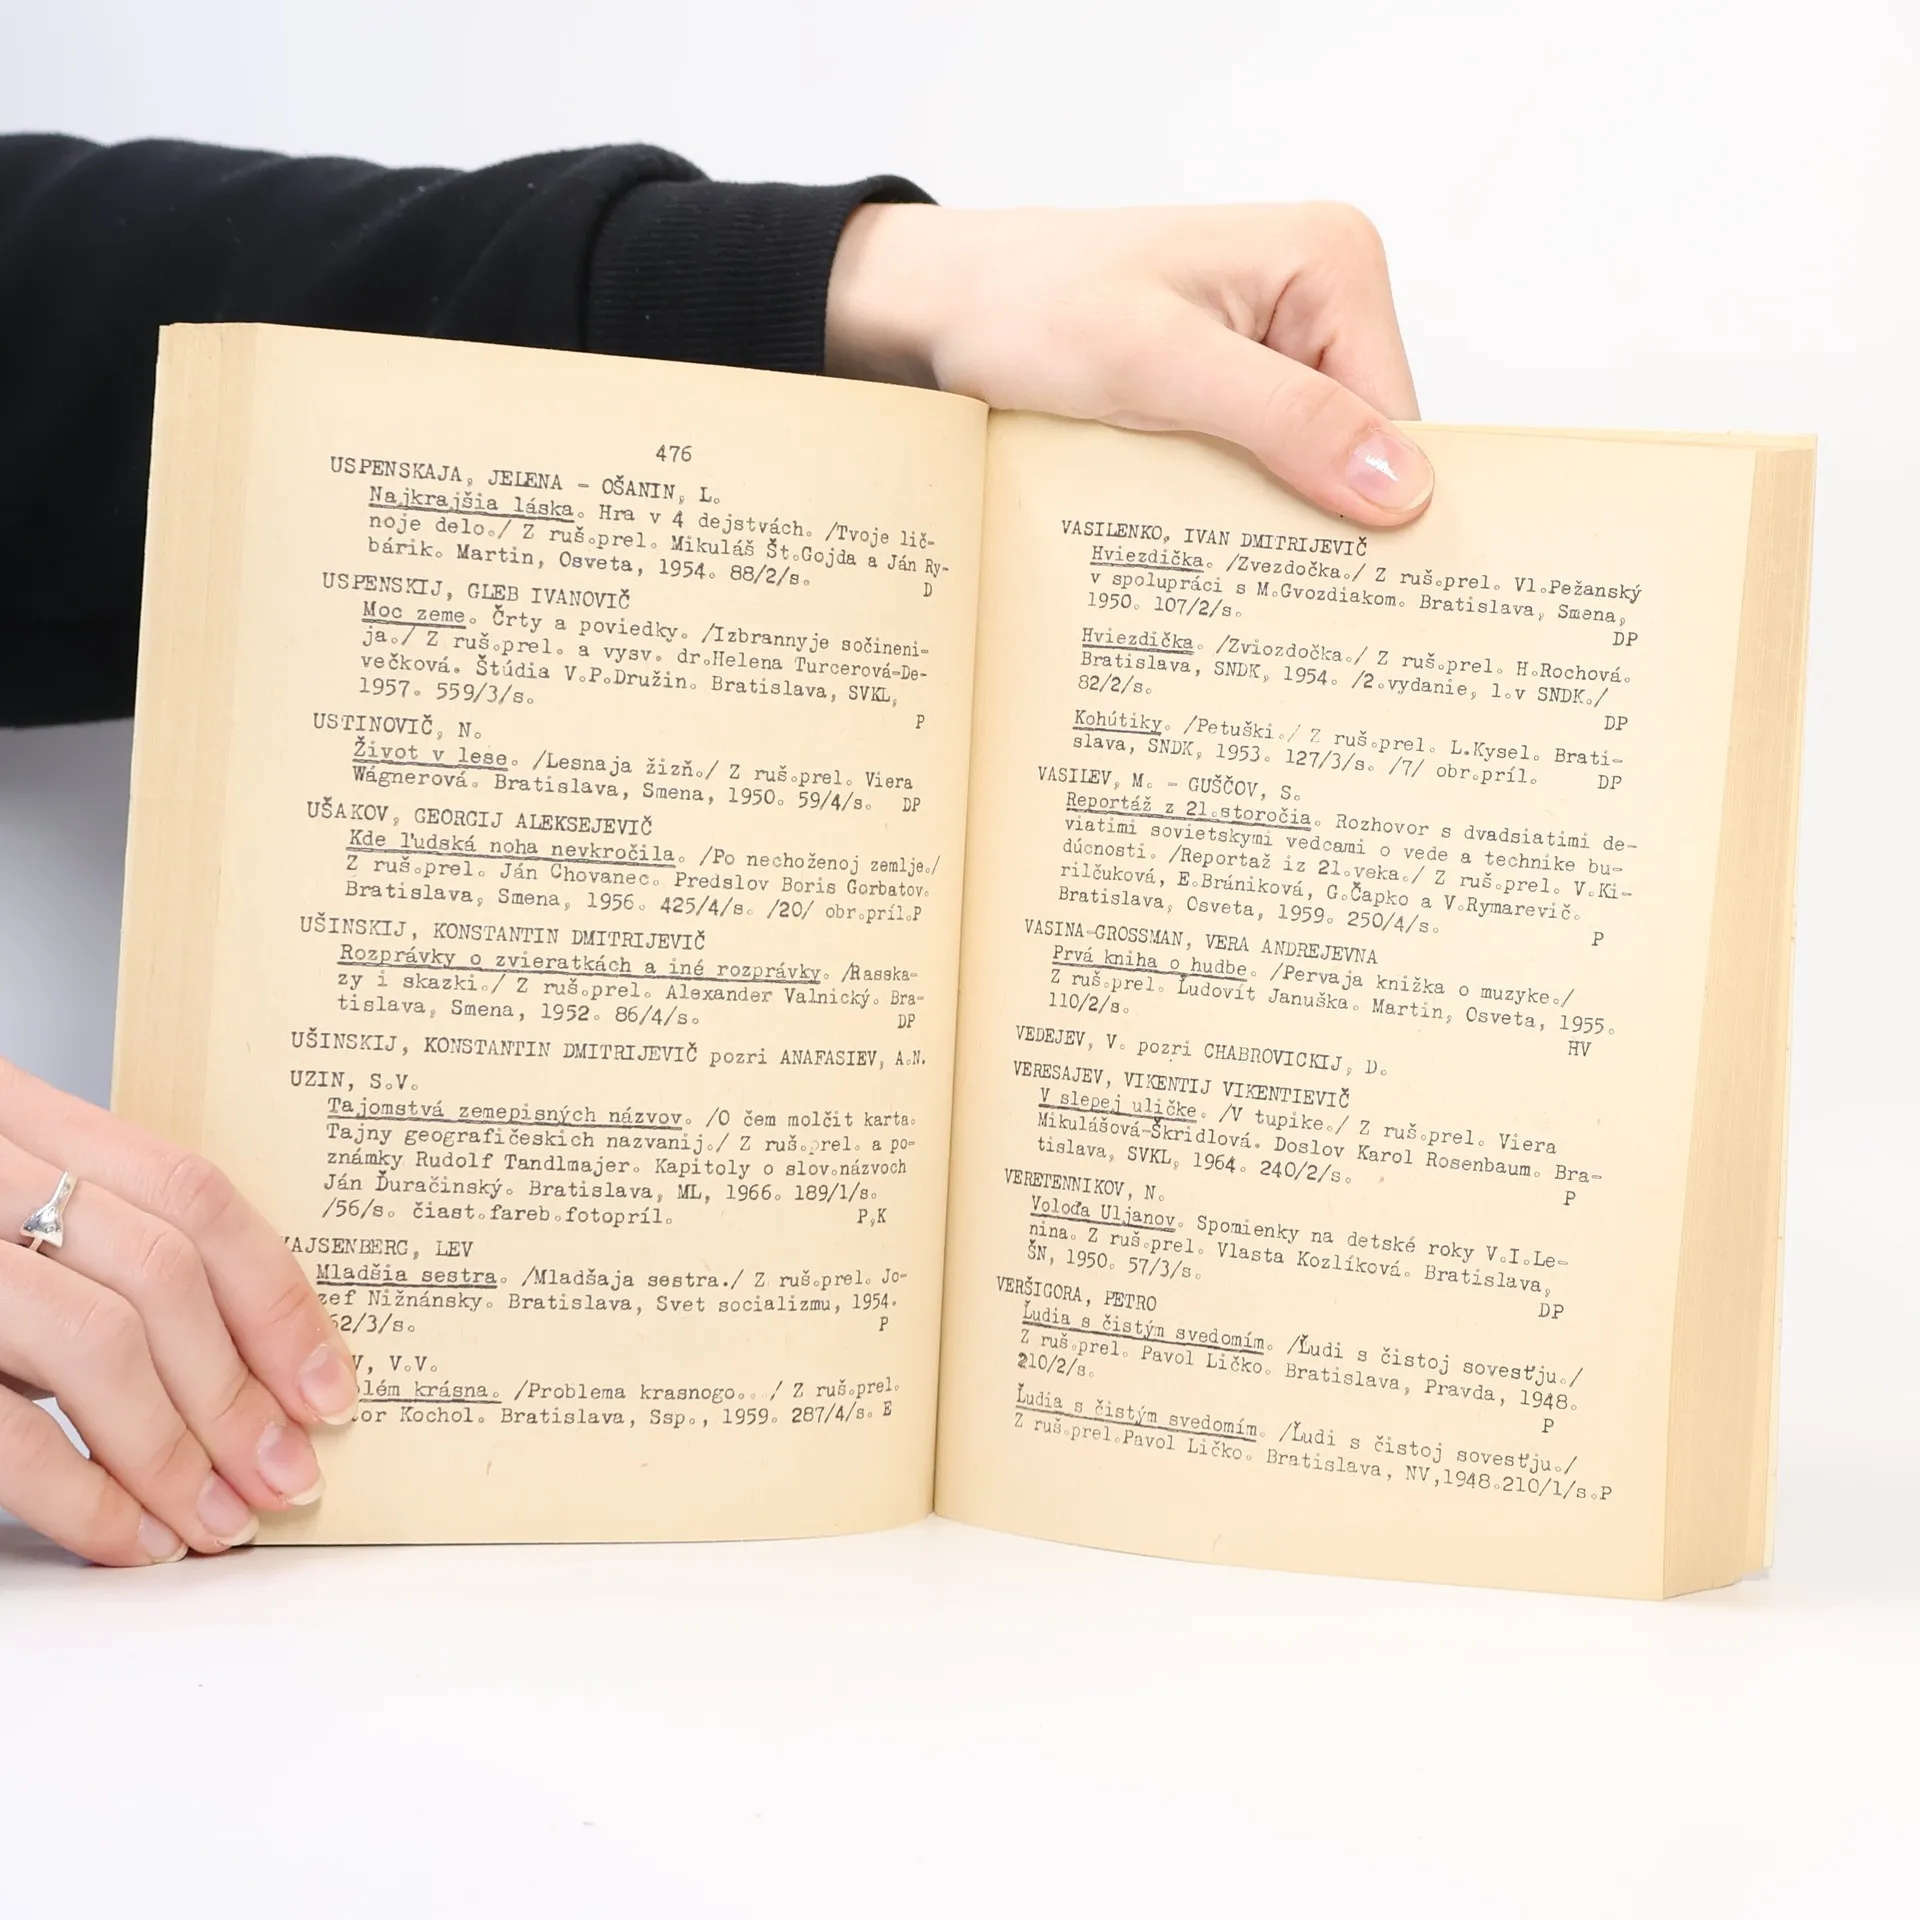 476
USPENSKAJA, JELENA - OŠANIN, L.
Najkrajšia láska. Hra v 4 dejstvách. /Tvoje lič-
noje delo./ Z ruš.prel. Mikuláš Št.Gojda a Ján Ry-
bárik. Martin, Osveta, 1954. 88/2/s. D
USPENSKIJ, GLEB IVANOVIČ
Moc zeme. Črty a poviedky. /Izbrannyje sočineni-
ja./ Z ruš.prel. a vysv. dr.Helena Turcerová-De-
večková. Štúdia V.P.Družin. Bratislava, SVKL,
1957. 559/3/s. P
USTINOVIČ, N.
Život v lese. /Lesnaja žizň./ Z ruš.prel. Viera
Wágnerová. Bratislava, Smena, 1950. 59/4/s. DP
UŠAKOV, GEORGIJ ALEKSEJEVIČ
Kde ľudská noha nevkročila. /Po nechoženoj zemlje./
Z ruš.prel. Ján Chovanec. Predslov Boris Gorbatov.
Bratislava, Smena, 1956. 425/4/s. /20/ obr.príl.P
UŠINSKIJ, KONSTANTIN DMITRIJEVIČ
Rozprávky o zvieratkách a iné rozprávky. /Rasska-
zy i skazki./ Z ruš.prel. Alexander Valnický. Bra-
tislava, Smena, 1952. 86/4/s. DP
UŠINSKIJ, KONSTANTIN DMITRIJEVIČ pozri ANAFASIEV, A.N.
UZIN, S.V.
Tajomstvá zemepisných názvov. /O čem molčit karta.
Tajny geografičeskich nazvanij./ Z ruš.prel. a po-
známky Rudolf Tandlmajer. Kapitoly o slov.názvoch
Ján Ďuračinský. Bratislava, ML, 1966. 189/1/s.
/56/s. čiast.fareb.fotopríl. P,K
VAJSENBERG, LEV
Mladšia sestra. /Mladšaja sestra./ Z ruš.prel. Jo-
zef Nižnánsky. Bratislava, Svet socializmu, 1954.
62/3/s. P
V, V.V.
lém krásna. /Problema krasnogo.../ Z ruš.prel.
tor Kochol. Bratislava, Ssp., 1959. 287/4/s. E
VASILENKO, IVAN DMITRIJEVIČ
Hviezdička. /Zvezdočka./ Z ruš.prel. Vl.Pežanský
v spolupráci s M.Gvozdiakom. Bratislava, Smena,
1950. 107/2/s. DP
Hviezdička. /Zviozdočka./ Z ruš.prel. H.Rochová.
Bratislava, SNDK, 1954. /2.vydanie, 1.v SNDK./
82/2/s. DP
Kohútiky. /Petuški./ Z ruš.prel. L.Kysel. Brati-
slava, SNDK, 1953. 127/3/s. /7/ obr.príl. DP
VASILEV, M. - GUŠČOV, S.
Reportáž z 21.storočia. Rozhovor s dvadsiatimi de-
viatimi sovietskymi vedcami o vede a technike bu-
dúcnosti. /Reportaž iz 21.veka./ Z ruš.prel. V.Ki-
rilčuková, E.Brániková, G.Čapko a V.Rymarevič.
Bratislava, Osveta, 1959. 250/4/s. P
VASINA-GROSSMAN, VERA ANDREJEVNA
Prvá kniha o hudbe. /Pervaja knižka o muzyke./
Z ruš.prel. Ľudovít Januška. Martin, Osveta, 1955.
110/2/s. HV
VEDEJEV, V. pozri CHABROVICKIJ, D.
VERESAJEV, VIKENTIJ VIKENTIEVIČ
V slepej uličke. /V tupike./ Z ruš.prel. Viera
Mikulášová-Škridlová. Doslov Karol Rosenbaum. Bra-
tislava, SVKL, 1964. 240/2/s. P
VERETENNIKOV, N.
Voloďa Uljanov. Spomienky na detské roky V.I.Le-
nina. Z ruš.prel. Vlasta Kozlíková. Bratislava,
ŠN, 1950. 57/3/s. DP
VERŠIGORA, PETRO
Ľudia s čistým svedomím. /Ľudi s čistoj sovesťju./
Z ruš.prel. Pavol Ličko. Bratislava, Pravda, 1948.
210/2/s. P
Ľudia s čistým svedomím. /Ľudi s čistoj sovesťju./
Z ruš.prel.Pavol Ličko. Bratislava, NV,1948.210/1/s.P